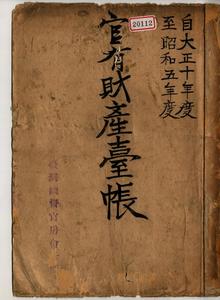 自大正十年度
至昭和五年度
20112
官有財産臺帳